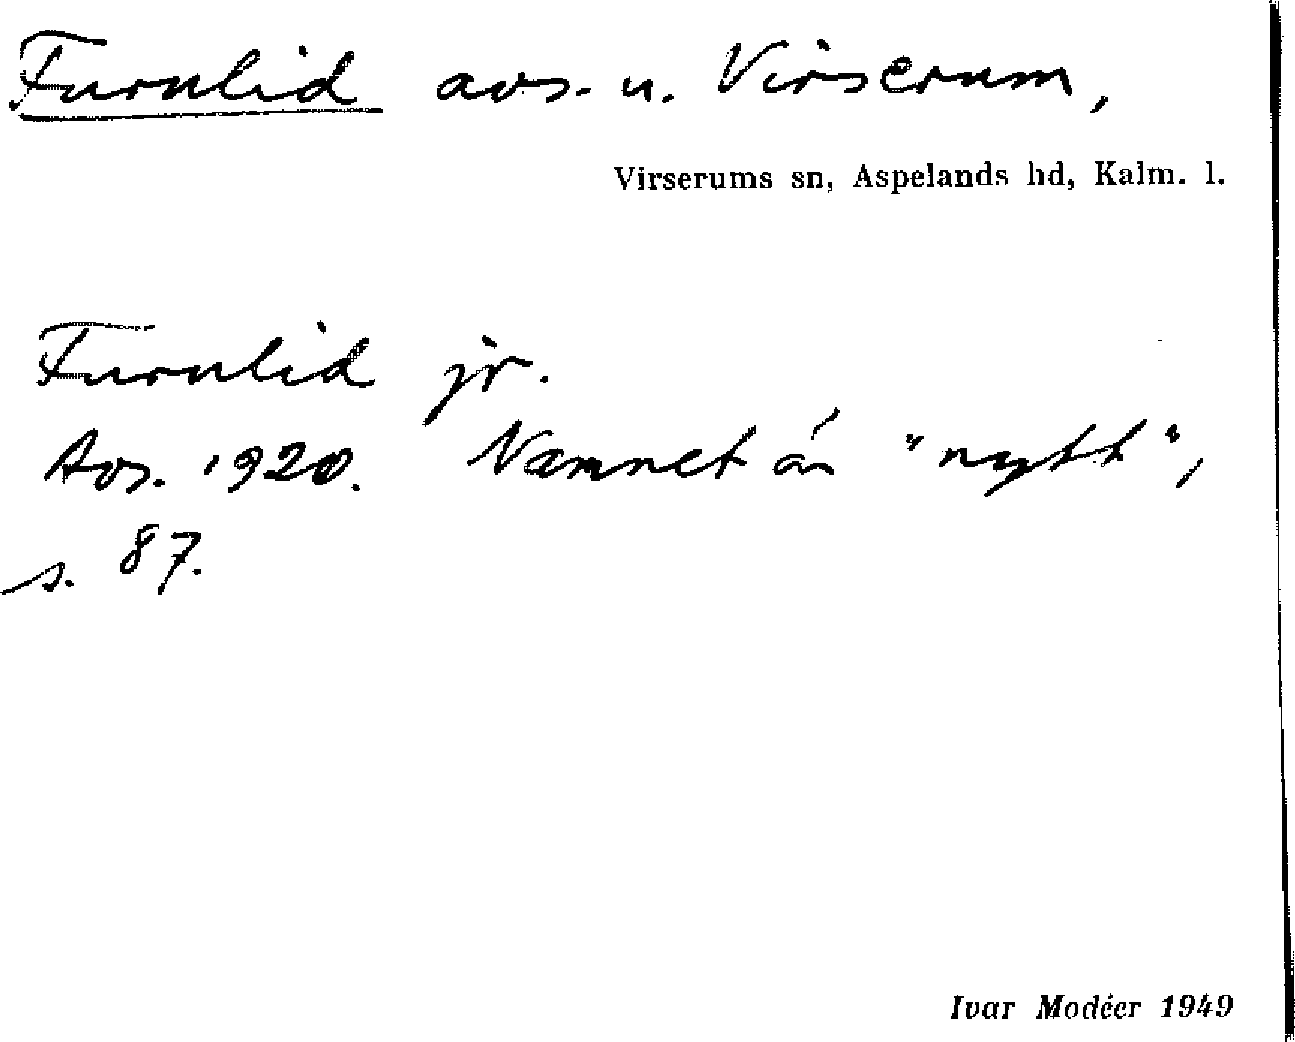 Furulid avs. u. Virserum,
Virserums sn, Aspelands hd, Kalm. l.
Furulid jr.
Avs. 1920. Namnet är "nytt",
s. 87.
Ivar Modéer 1949